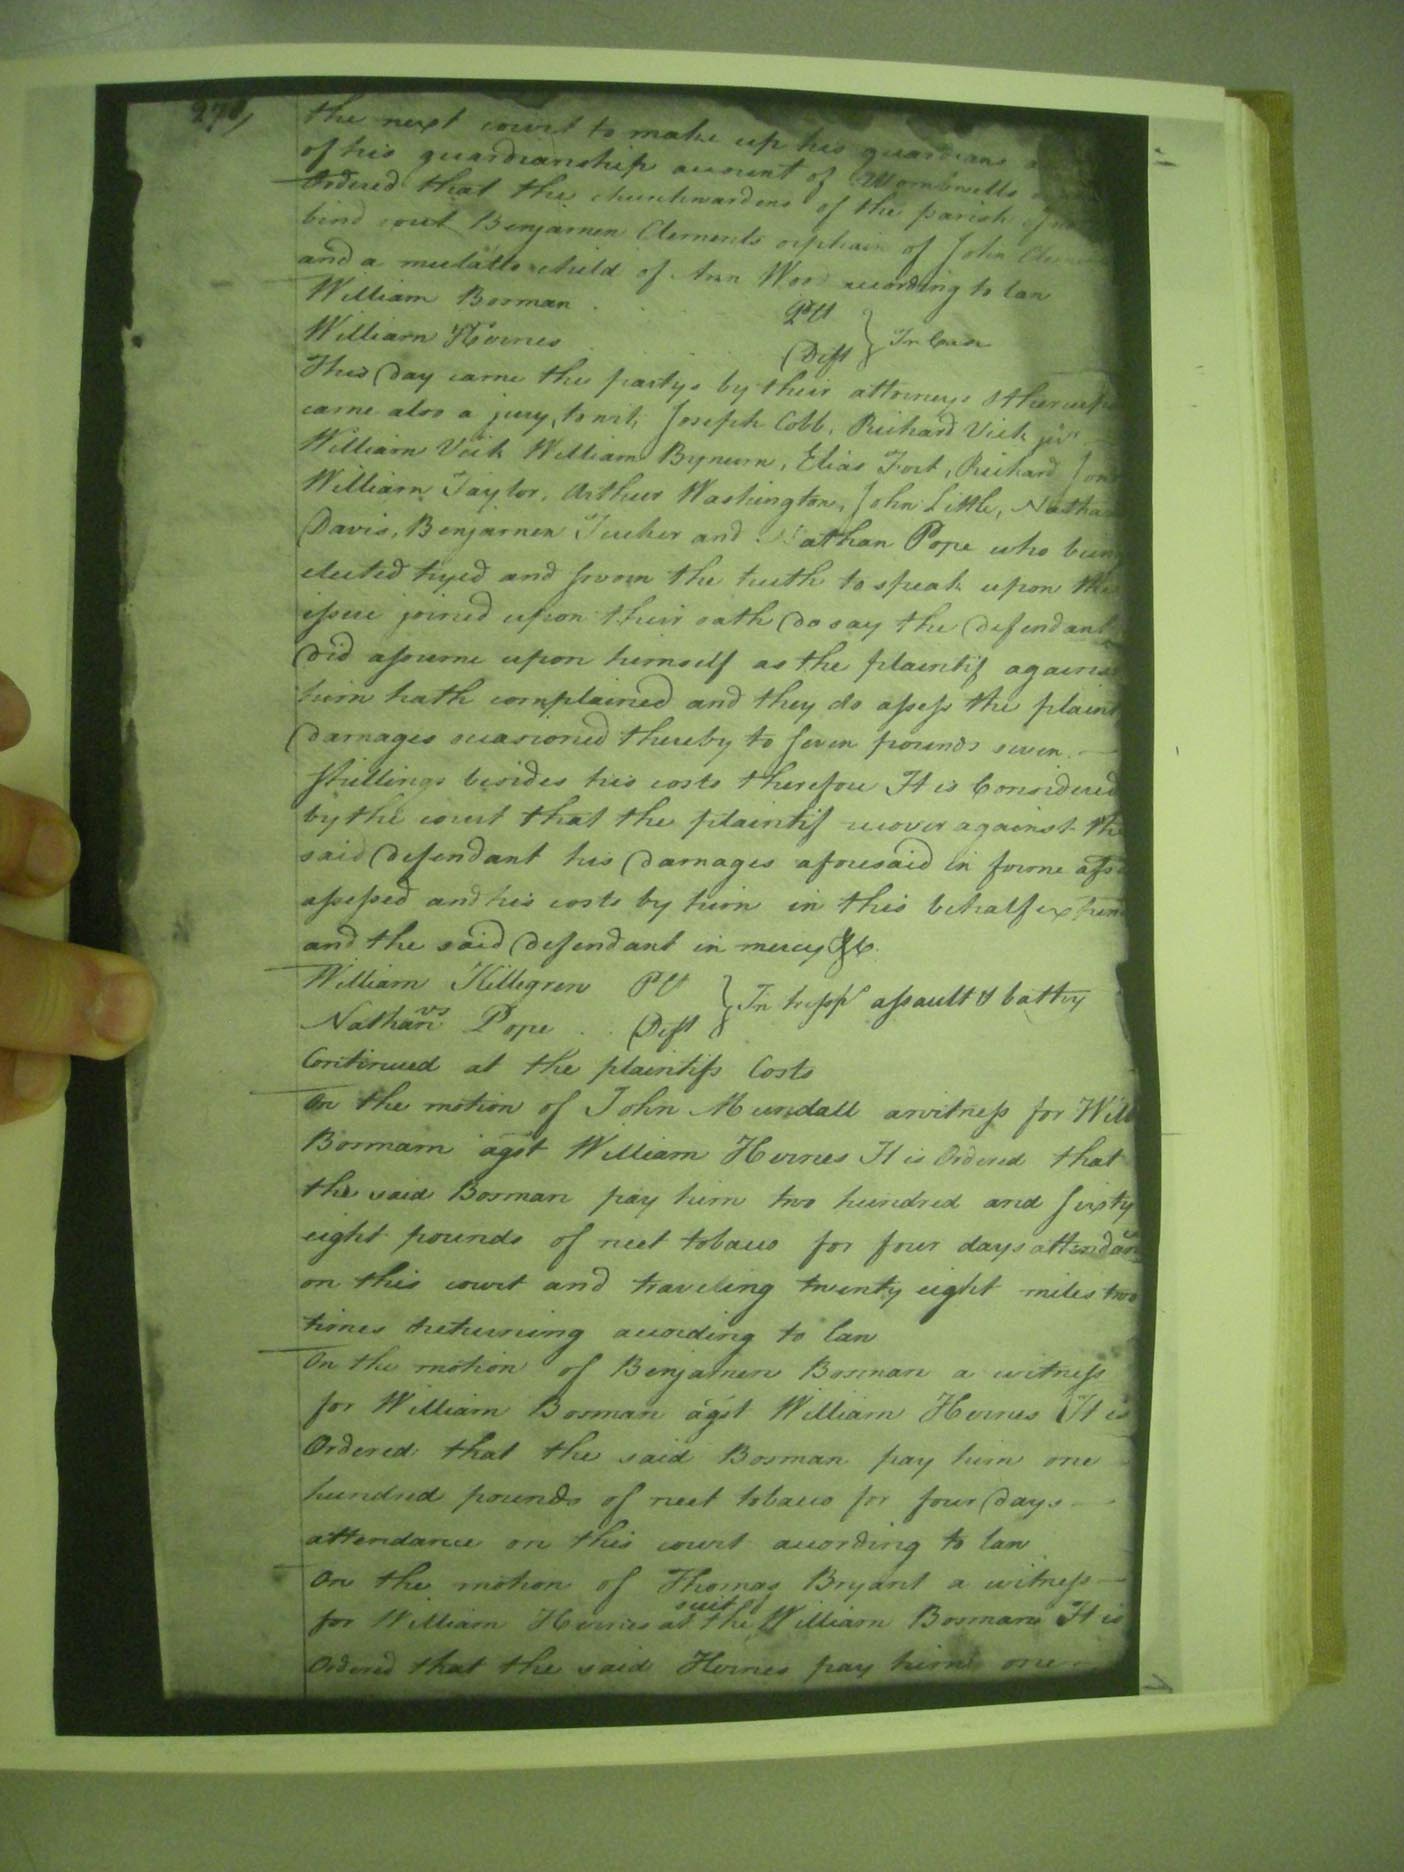 the next court to make up his guardians
of his guardianship account of Wombwells
Ordered that the churchwardens of the parish of
bind out Benjamen Clements orphain of John
and a mulatto child of Ann Woo according to law
William Bosman Plt
William Hornes Deft } In Case
This Day came the partys by their attorneys & thereup
came also a jury, to wit, Joseph Cobb, Richard Vick jur
William Vick William Bynum, Elias Fort, Richard Jon
William Taylor, Arthur Washington, John Little, Natha
Davis, Benjamen Tucker and Nathan Pope who being
elected tryed and sworn the truth to speak upon the
issue joined upon their oath Do say the Defendant
Did assume upon himself as the plaintif against
him hath complained and they do assess the plaint
Damages occasioned thereby to seven pounds seven
shillings besides his costs therefore It is Considered
by the court that the plaintif recover against the
said Defendant his Damages aforesaid in forme afs
assessed and his costs by him in this behalf expen
and the said Defendant in mercy &c.
William Killegrew Plt
vs
Nathan Pope Deft } In tresps assault & battry
Continued at the plaintifs Costs
On the motion of John Mundall a witness for Will
Bosmam agst William Hornes It is Ordered that
the said Bosman pay him two hundred and sixty
eight pounds of neet tobacco for four days attendan
on this court and traveling twenty eight miles two
times & returning according to law
On the motion of Benjamen Bosman a witness
for William Bosman agst William Hornes It is
Ordered that the said Bosman pay him one
hundred pounds of neet tobacco for four Days
attendance on this court according to law
On the motion of Thomas Bryant a witness
suit of
for William Hornes at the William Bosman It is
Ordered that the said Hornes pay him one